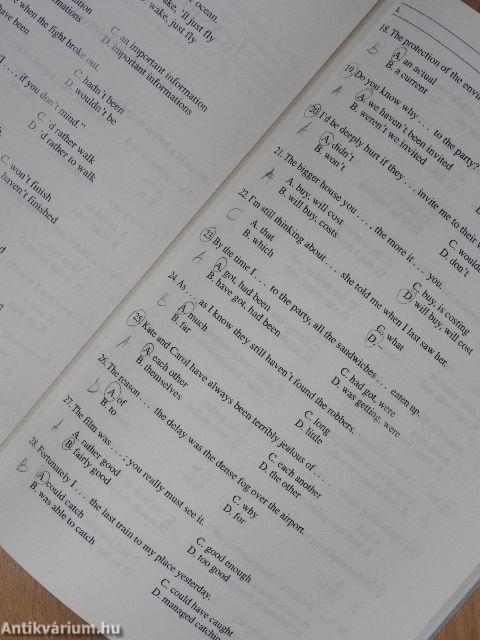 ocean.
ake, 'll just fly
wake, just fly
C. an important information
D. important informations
when the fight broke out.
C. hadn't been
D. wouldn't be
if you don't mind."
C. 'd rather walk
D. 'd rather to walk
C. won't finish
haven't finished
1.
18. The protection of the
B A. an actual
B. a current
19. Do you know why . . . to the party?
A A. we haven't been invited
B. weren't we invited
20. I'd be deeply hurt if they . . . invite me to their
A A. didn't
B. won't
C. would
D. don't
21. The bigger house you . . . , the more it . . . you.
A A. buy, will cost
B. will buy, costs
C. buy, is costing
D. will buy, will cost
22. I'm still thinking about . . . she told me when I last saw her.
C A. that
B. which
C. what
D. –
23. By the time I . . . to the party, all the sandwiches . . . eaten up.
A A. got, had been
B. have got, had been
C. had got, were
D. was getting, were
24. As . . . as I know they still haven't found the robbers.
B A. much
B. far
C. long
D. little
25. Kate and Carol have always been terribly jealous of . . .
A A. each other
B. themselves
C. each another
D. the other
26. The reason . . . the delay was the dense fog over the airport.
D A. of
B. to
C. why
D. for
27. The film was . . . ; you really must see it.
A A. rather good
B. fairly good
C. good enough
D. too good
28. Fortunately I . . . the last train to my place yesterday.
B A. could catch
B. was able to catch
C. could have caught
D. managed catching
Antikvárium.hu